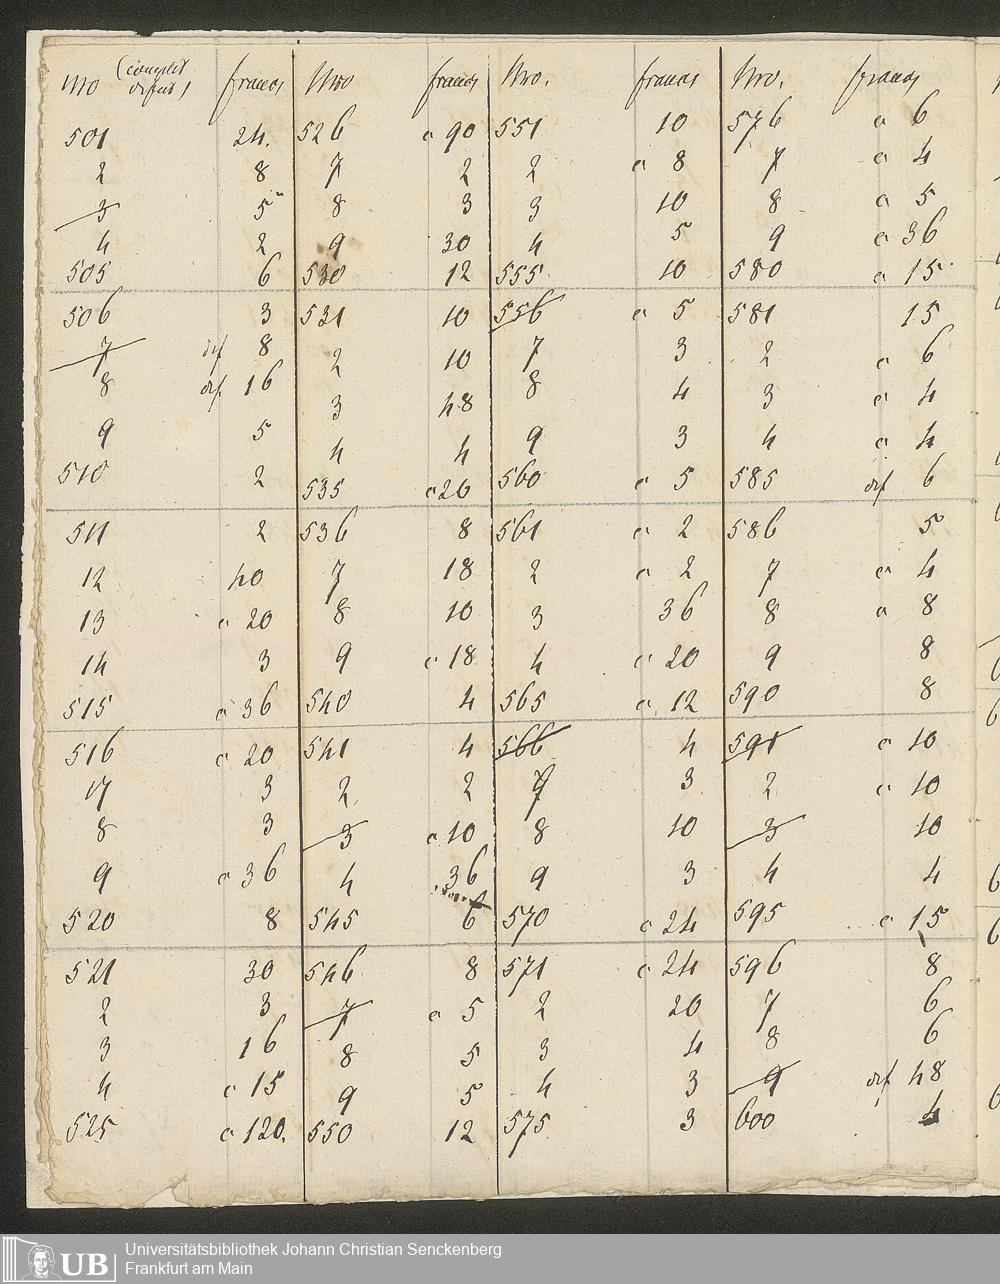 Nro (complet defect) francs Nro francs Nro. francs Nro. francs
501 24. 526 c 90 551 10 576 c 6
2 8 7 2 2 c 8 7 c 4
3 5 8 3 3 10 8 c 5
4 2 9 30 4 5 9 c 36
505 6 530 12 555 10 580 c 15
506 3 531 10 556 c 5 581 15
7 def 8 2 10 7 3 2 c 6
8 def. 16 3 48 8 4 3 c 4
9 5 4 4 9 3 4 c 4
510 2 535 c 20 560 c 5 585 def 6
511 2 536 8 561 c 2 586 5
12 40 7 18 2 c 2 7 c 4
13 c 20 8 10 3 36 8 c 8
14 3 9 c 18 4 c 20 9 8
515 c 36 540 4 565 c 12 590 8
516 c 20 541 4 566 4 591 c 10
17 3 2 2 7 3 2 c 10
8 3 3 c 10 8 10 3 10
9 c 36 4 36 9 3 4 4
520 8 545 6 570 c 24 595 c 15
521 30 546 8 571 c 24 596 8
2 3 7 c 5 2 20 7 6
3 16 8 5 3 4 8 6
4 c 15 9 5 4 3 9 def 48
525 c 120. 550 12 575 3 600 4
UB Universitätsbibliothek Johann Christian Senckenberg
Frankfurt am Main